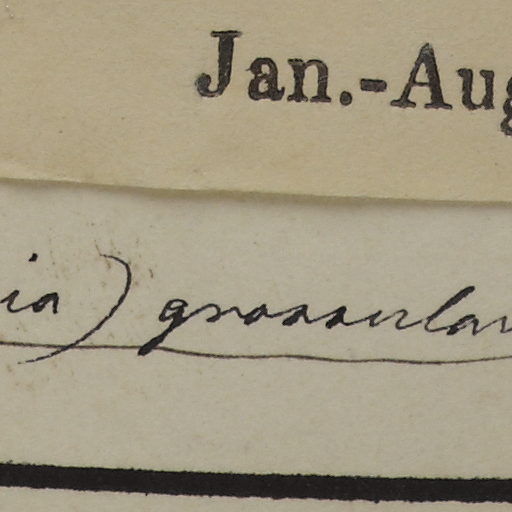 Jan.-Aug
ia) grossular